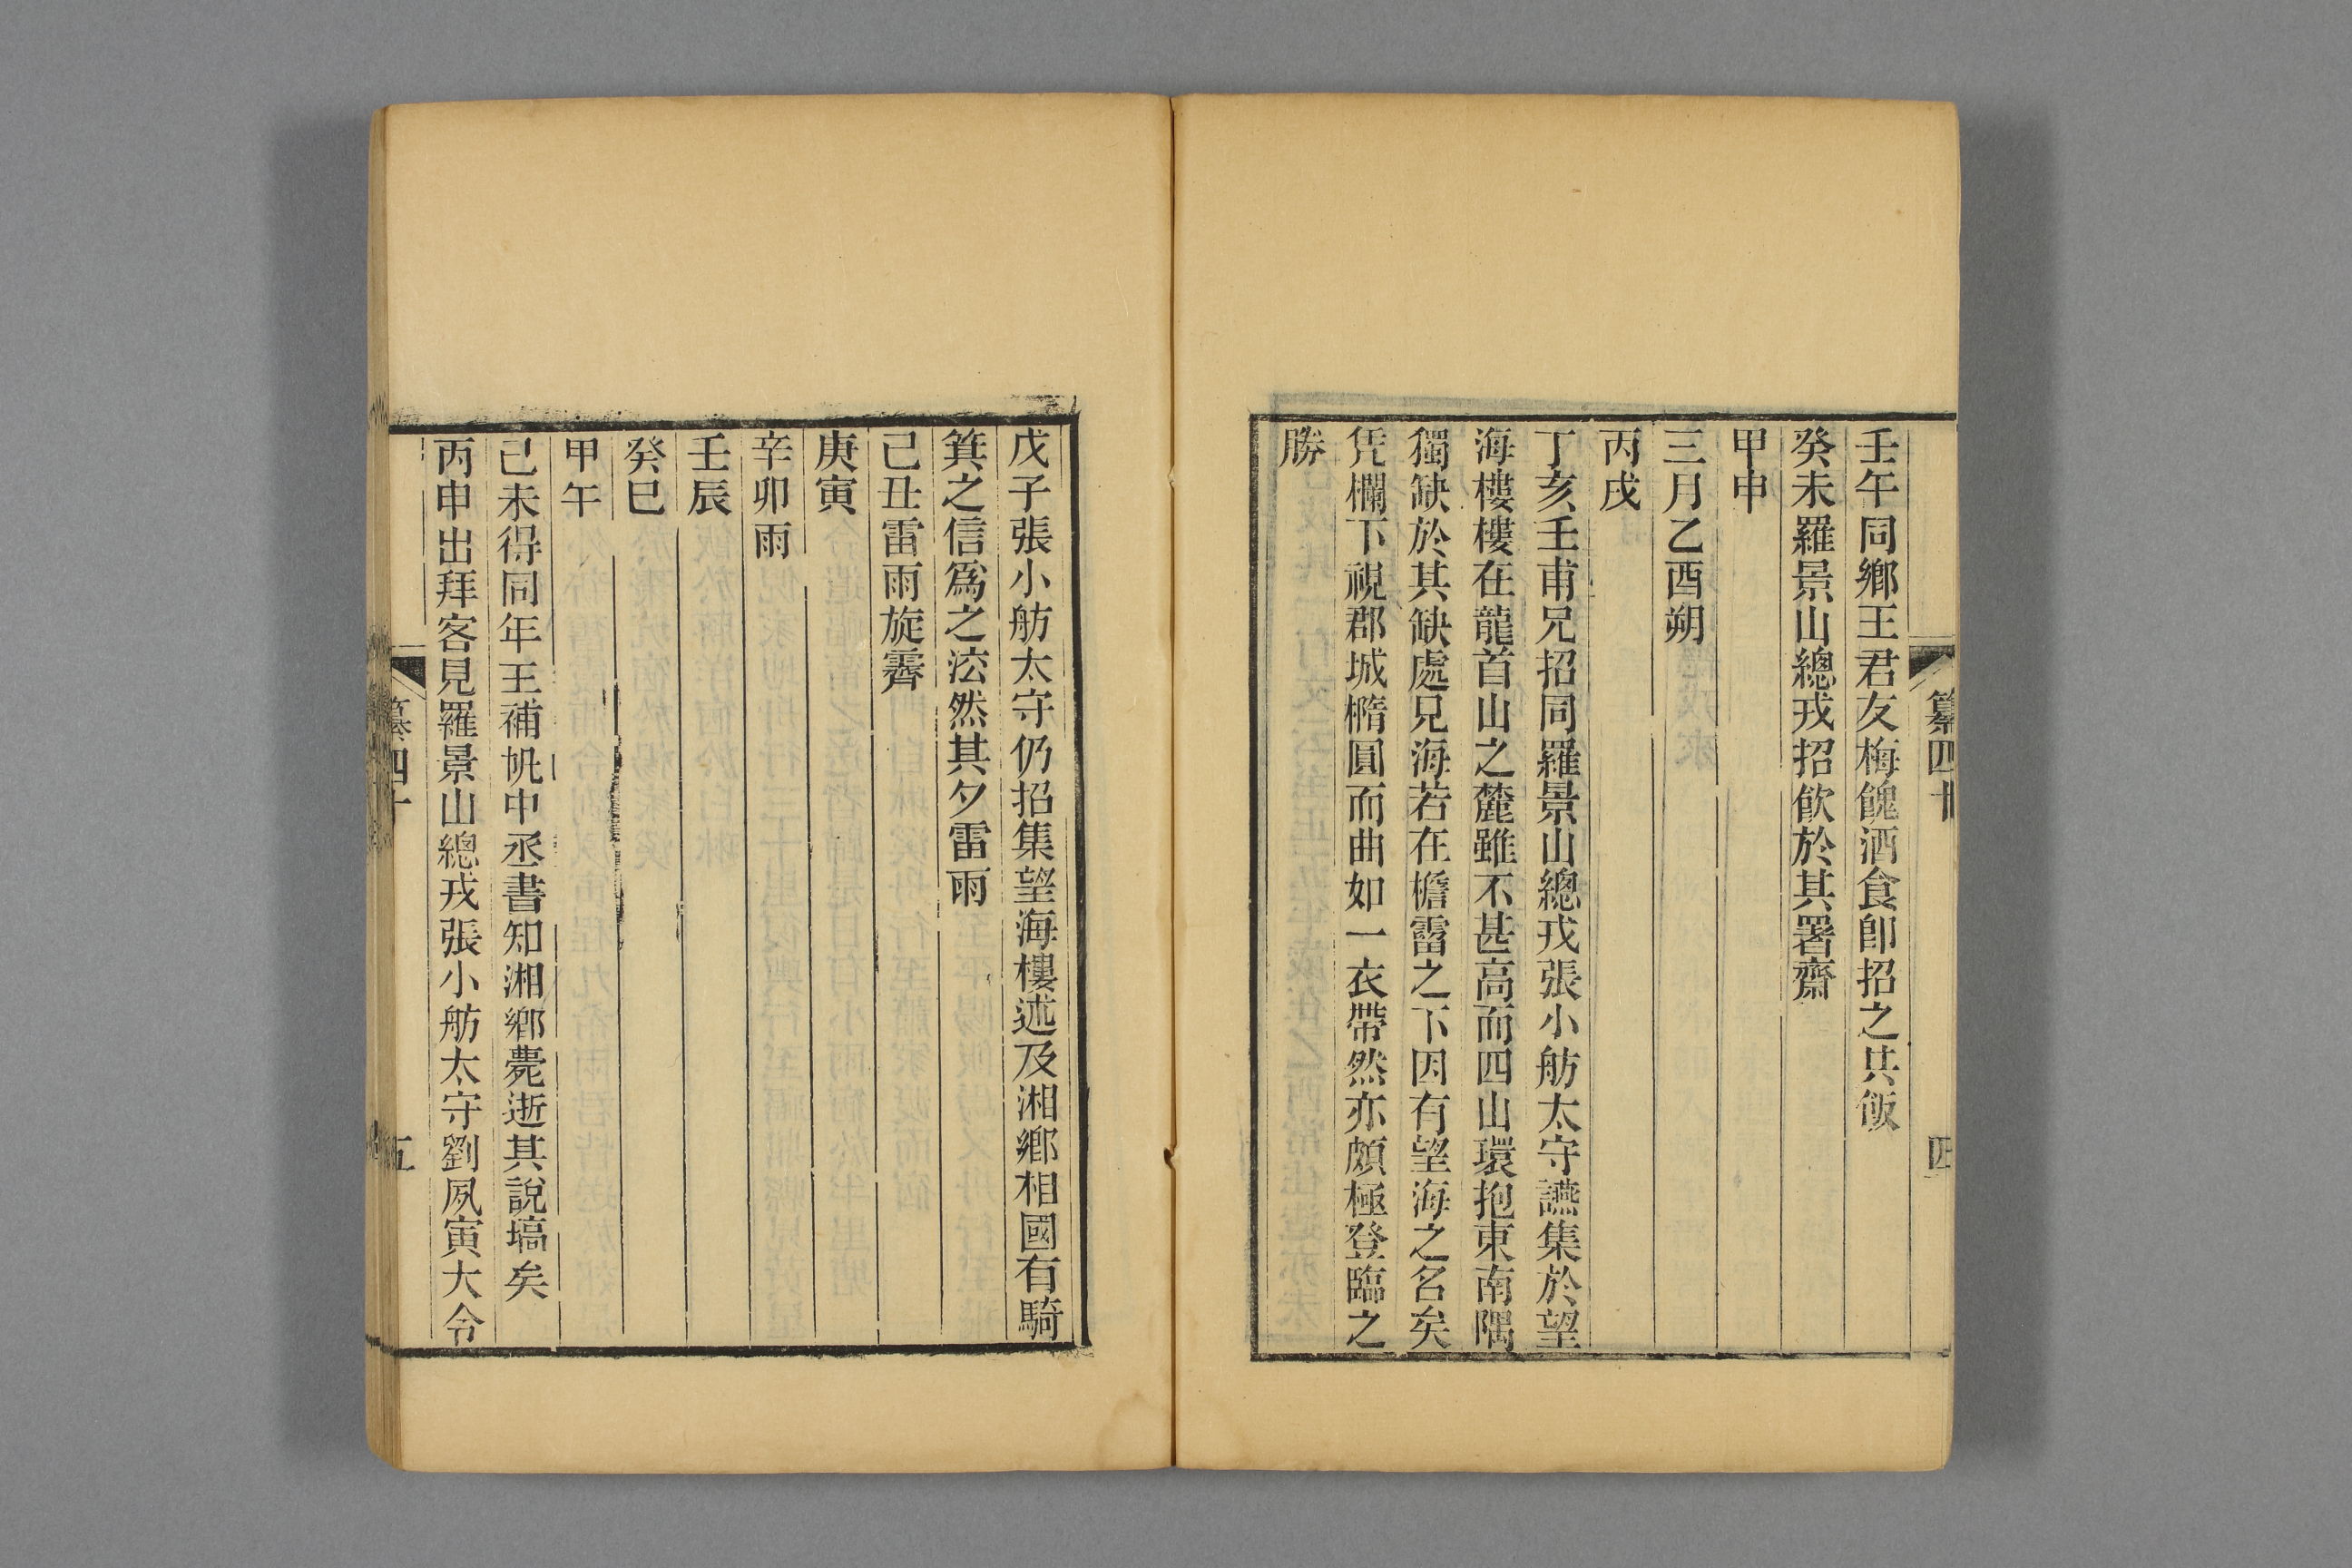 纂四十
四
壬午同鄉王君友梅餽酒食卽招之共飯
癸未羅景山總戎招飮於其署齋
甲申
三月乙酉朔
丙戌
丁亥壬甫兄招同羅景山總戎張小舫太守讌集於望
海樓樓在龍首山之麓雖不甚高而四山環抱東南隅
獨缺於其缺處見海若在檐霤之下因有望海之名矣
凭欄下視郡城橢圓而曲如一衣帶然亦頗極登臨之
勝
戊子張小舫太守仍招集望海樓述及湘鄉相國有騎
箕之信爲之泫然其夕雷雨
己丑雷雨旋霽
庚寅
辛卯雨
壬辰
癸巳
甲午
己未得同年王補帆中丞書知湘鄉薨逝其說塙矣
丙申出拜客見羅景山總戎張小舫太守劉夙寅大令
纂四十
五